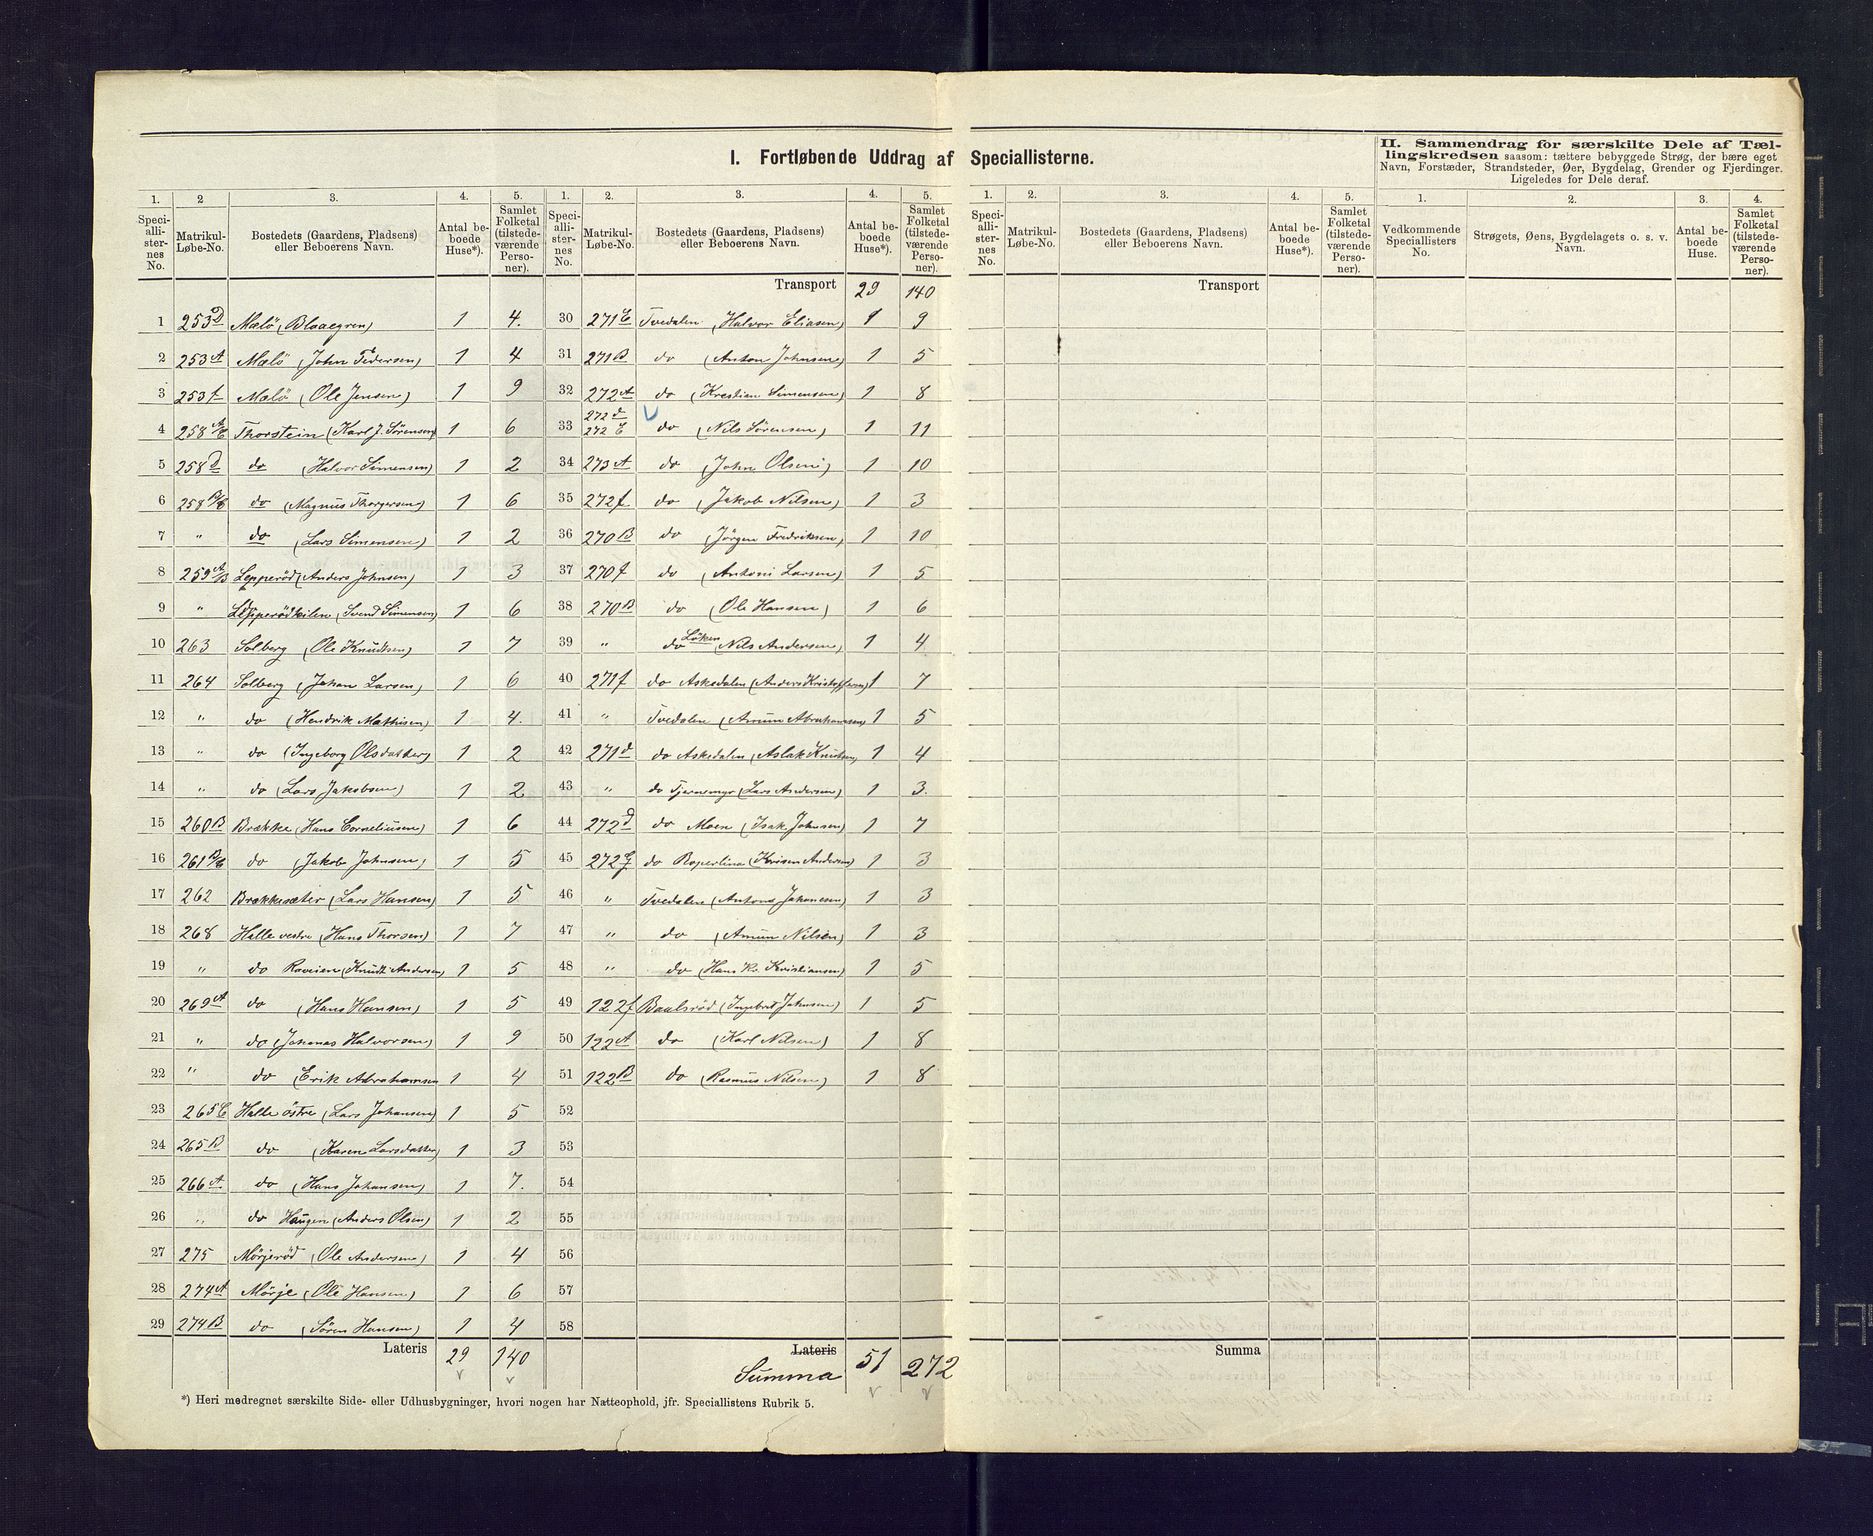 I. Fortløbende Uddrag af Speciallisterne.
II. Sammendrag for særskilte Dele af Tæl-
lingskredsen saasom: tættere bebyggede Strøg, der bære eget
Navn, Forstæder, Strandsteder, Øer, Bygdelag, Grender og Fjerdinger.
Ligeledes for Dele deraf.
1. 2 3. 4. 5. 1. 2. 3. 4. 5. 1. 2. 3. 4. 5. 1. 2. 3. 4.
Speci-alli-ster-nes No. Matrikul-Løbe-No. Bostedets (Gaardens, Pladsens) eller Beboerens Navn. Antal be-boede Huse*). Samlet Folketal (tilstede-værende Perso-ner).
Speci-alli-ster-nes No. Matrikul-Løbe-No. Bostedets (Gaardens, Pladsens) eller Beboerens Navn. Antal be-boede Huse*). Samlet Folketal (tilstede-værende Perso-ner).
Speci-alli-ster-nes No. Matrikul-Løbe-No. Bostedets (Gaardens, Pladsens) eller Beboerens Navn. Antal be-boede Huse*). Samlet Folketal (tilstede-værende Perso-ner).
Vedkommende Speciallisters No. Strøgets, Øens, Bygdelagets o. s. v. Navn. Antal be-boede Huse. Samlet Folketal (tilstede-værende Perso-ner).
1 253D Mælö (Blaaegren) 1 4.
2 253A Mælö (John Pedersen) 1 4
3 253f Mælö (Ole Jensen) 1 9
4 258A/E Thorstein (Karl J. Sørensen) 1 6
5 258D do (Halvor Simensen) 1 2
6 258B/C do (Magnus Thorgersen) 1 6
7 " do (Lars Simensen) 1 2
8 259A/B Lepperöd (Anders Johnsen) 1 3
9 " Lepperödkilen (Svend Simensen) 1 6
10 263 Solberg (Ole Knudsen) 1 7
11 264 Solberg (Johan Larsen) 1 6
12 " do (Hendrik Mathisen) 1 4.
13 " do (Ingeborg Olsdatter) 1 2
14 " do (Lars Jakobsen) 1 2
15 260B Brække (Hans Corneliusen) 1 6
16 261B/C do (Jakob Johnsen) 1 5
17 262 Brækkesæter (Lars Hansen) 1 5
18 268 Halle vestre (Hans Thorsen) 1 7
19 " do Raveien (Knudt Andersen) 1 5
20 269A do (Hans Hansen) 1 5
21 " do (Johanes Halvorsen) 1 9
22 " do (Erik Abrahamsen 1 4
23 265C Halle östre (Lars Johansen) 1 5
24 265B do (Karen Larsdatter) 1 3
25 266A do (Hans Johansen) 1 7.
26 " do Haugen (Anders Olsen) 1 2
27 275 Mörjeröd (Ole Andersen) 1 4
28 274A Mörje (Ole Hansen) 1 6
29 274B do (Sören Hansen) 1 4
Lateris 29 140
Transport 29 140
30 271C Tvedalen (Halvor Eliasen) 1 9
31 271B do (Anton Johnsen) 1 5
32 272A do (Krestian Simensen) 1 8
33 272d 272E do (Nils Sörensen) 1 11
34 273A do (John Olsen) 1 10
35 272f do (Jakob Nilsen) 1 3
36 270B do (Jörgen Fredriksen) 1 10
37 270f do (Antoni Larsen) 1 5
38 270B do (Ole Hansen) 1 6
39 " do Löken (Nils Andersen) 1 4
40 271f do Askedalen (Anders Kristoffersen) 1 7
41 " Tvedalen (Amun Abrahamsen) 1 5
42 271d do Askedalen (Aslak Knutsen) 1 4
43 " do Tjernsmyr (Lars Andersen) 1 3.
44 272D do Moen (Isak Johnsen) 1 7
45 272G do Roperlina (Krisen Andersen) 1 3
46 " Tvedalen (Antons Johanesen) 1 3
47 " do (Amun Nilsen) 1 3
48 " do (Hans Kr. Kristiansen) 1 5
49 122f Baalsröd (Ingebret Johnsen) 1 5
50 122A do (Karl Nilsen) 1 8
51 122B do (Rasmus Nilsen) 1 8
52
53
54
55
56
57
58
Lateris
Summa 51 272
Transport
Summa
*) Heri medregnet særskilte Side- eller Udhusbygninger, hvori nogen har Natteophold, jfr. Speciallistens Rubrik 5.